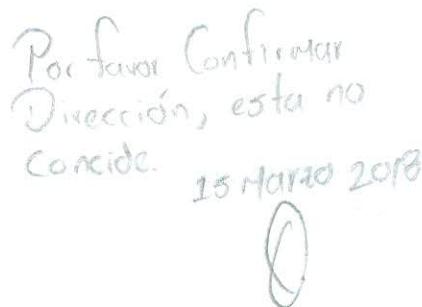 Por favor Confirmar
Dirección, esta no
Concide.
15 Marzo 2018